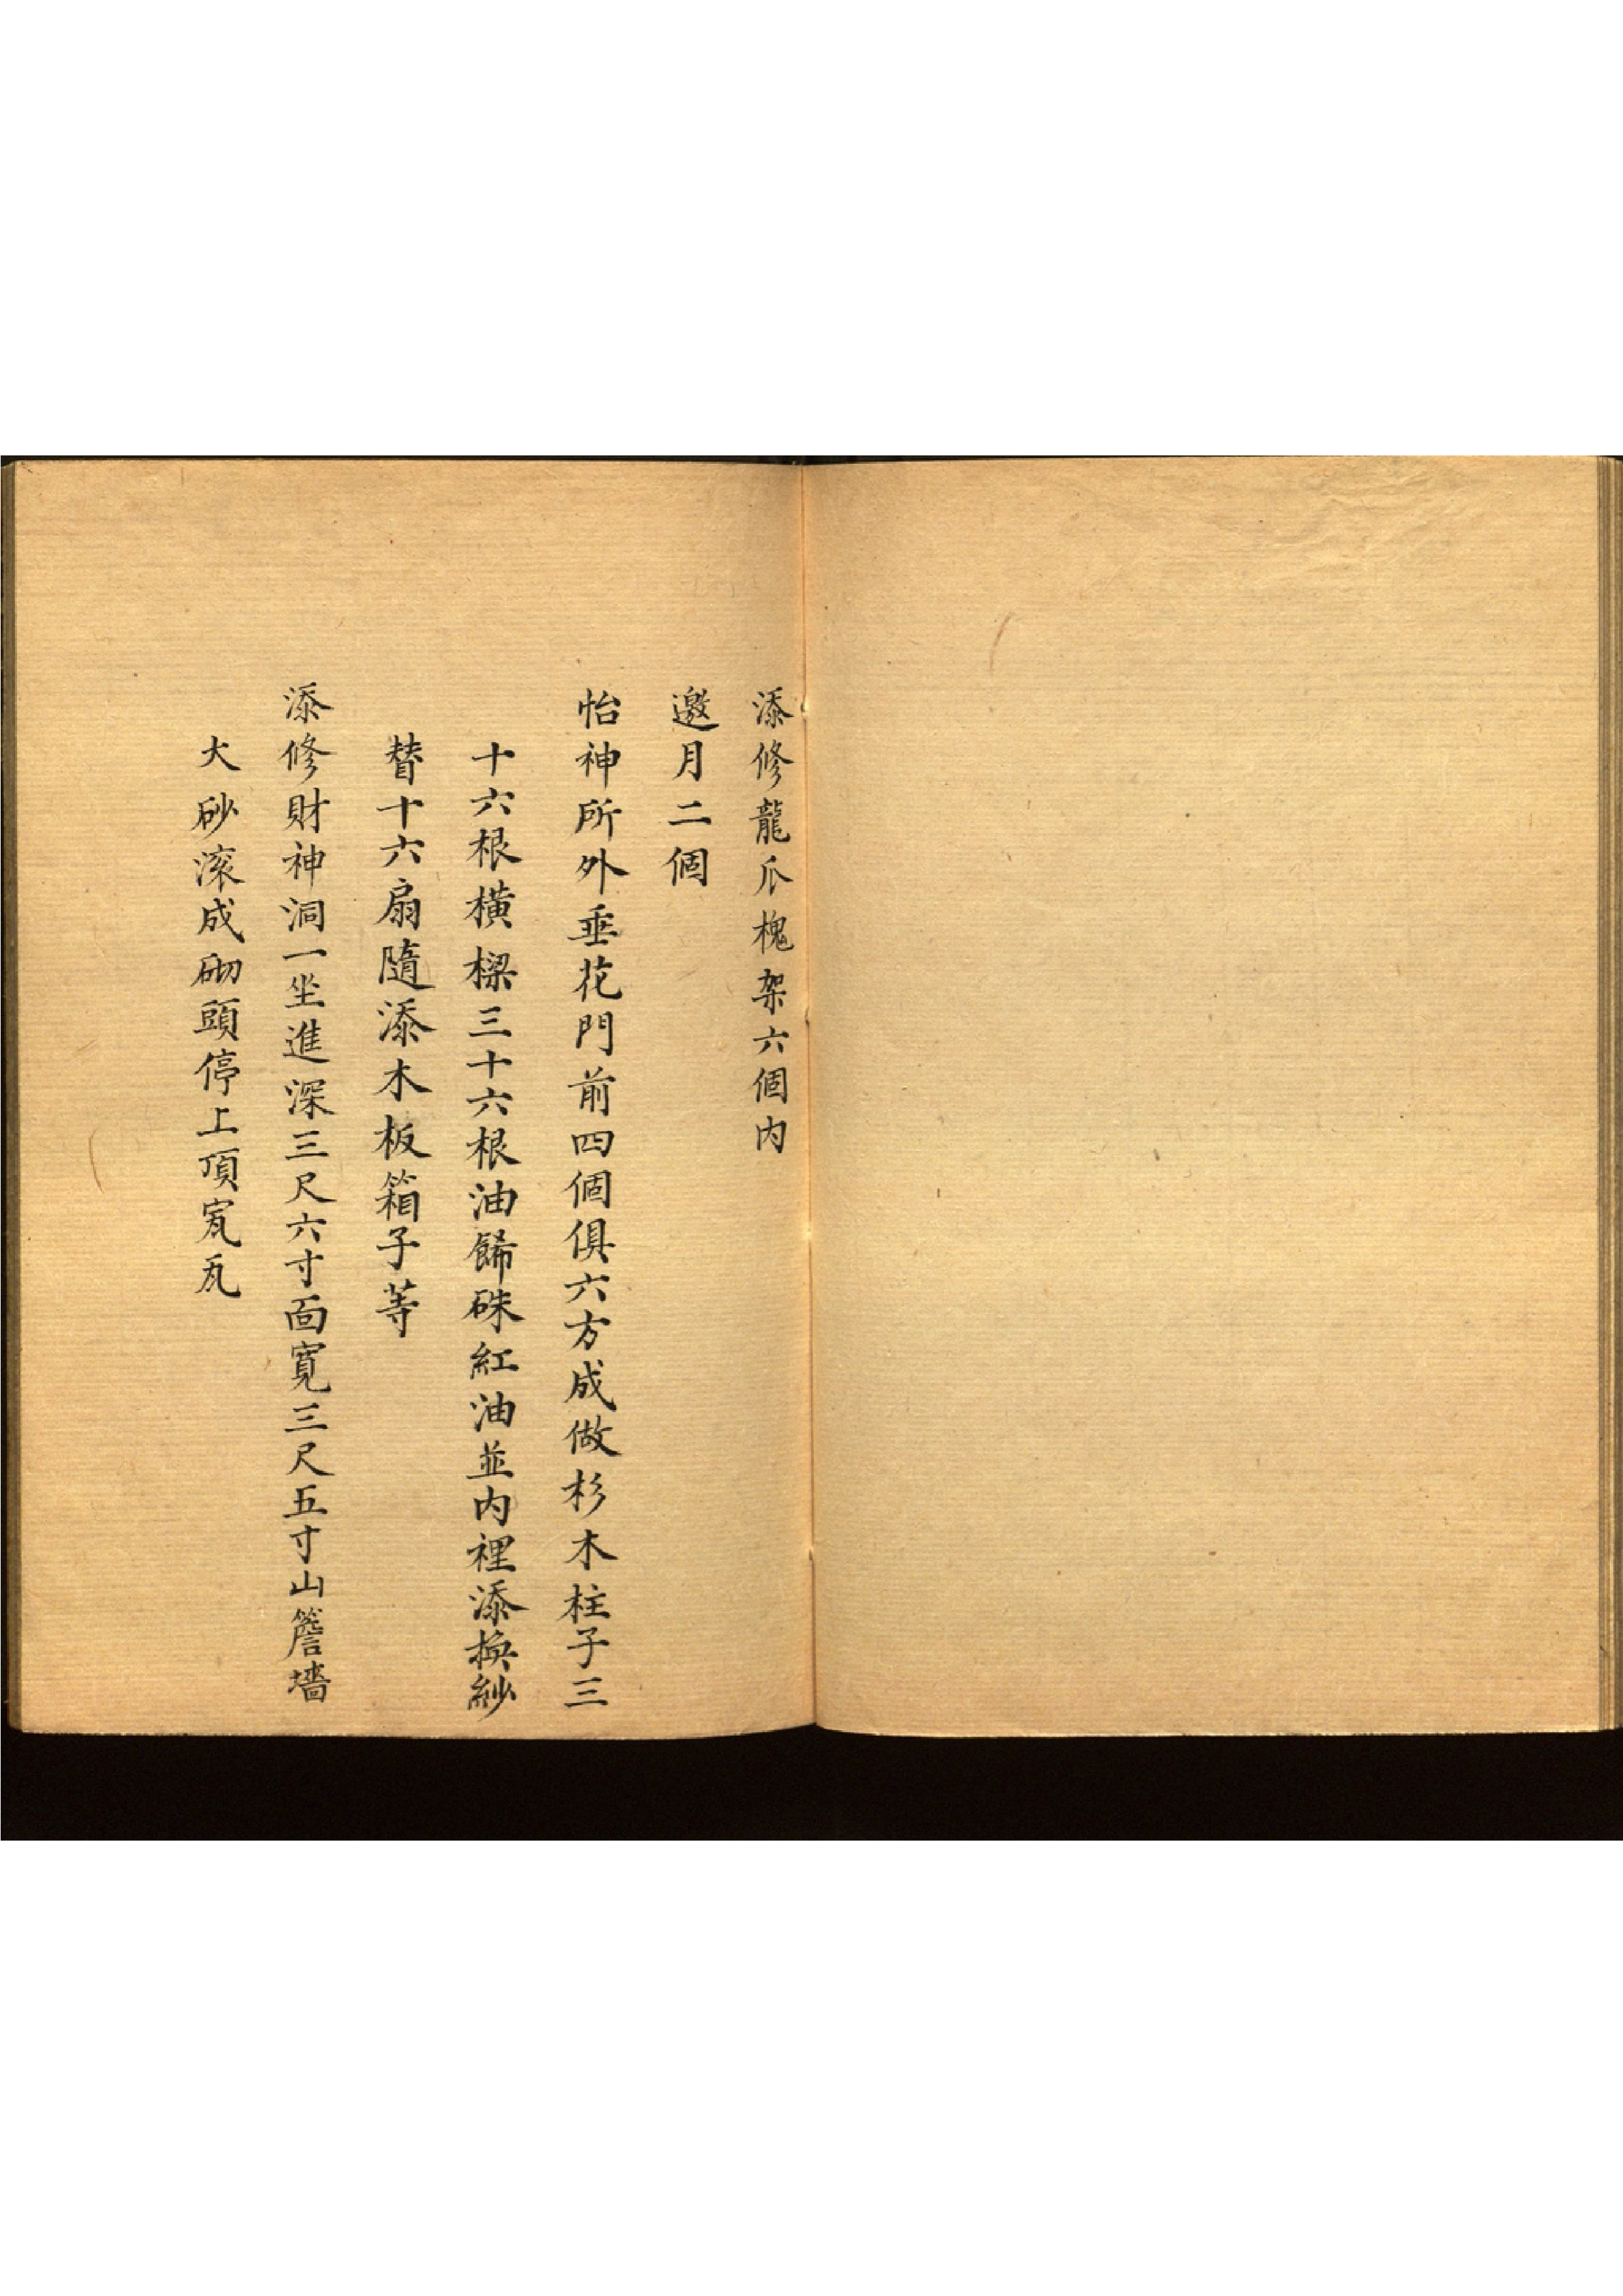 添修龍爪槐架六個内
邀月二個
怡神所外垂花門前四個俱六方成做杉木柱子三
十六根橫樑三十六根油餙硃紅油並内裡添換紗
替十六扇隨添木板箱子等
添修財神洞一坐進深三尺六寸面寬三尺五寸山簷墻
大砂滚成砌頭停上頂㝃瓦